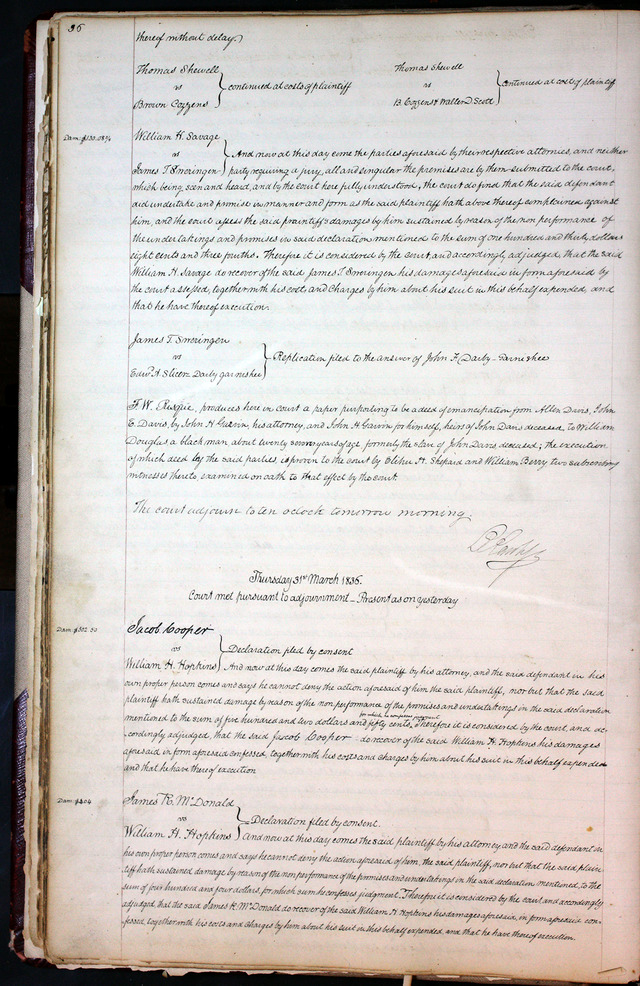 36
thereof without delay.
Thomas Shewell
vs
Brown Cozzens
continued at costs of plaintiff
Thomas Shewell
vs
B. Cozzens & Walter D. Scott
continued at cost of plaintiff
Dam: $130.08¾
William H. Savage
vs
James T. Sweringen
And now at this day come the parties aforesaid by their respective attornies, and neither
party requiring a jury, all and singular the premises are by them submitted to the court,
which being seen and heard, and by the court here fully understood, the court do find that the said defendant
did undertake and promise in manner and form as the said plaintiff hath above thereof complained against
him, and the court assess the said plaintiff's damages by him sustained by reason of the non performance of
the undertakings and promises in said declaration mentioned to the sum of one hundred and thirty dollars
eight cents and three fourths. Therefore it is considered by the court, and accordingly adjudged, that the said
William H. Savage do recover of the said James T. Sweringen his damages aforesaid in form aforesaid by
the court assessed, together with his costs and charges by him about his suit in this behalf expended, and
that he have thereof execution.
James T. Sweringen
vs
Edwd A. Slicer Darby garnishee
Replication filed to the answer of John F. Darby - Garnishee
F. W. Risque, produces here in court a paper purporting to be a deed of emancipation from Allen Davis, John
E. Davis, by John H. Gavin, his attorney, and John H. Gavin for himself, heirs of John Davis deceased, to William
Douglas a black man about twenty seven years of age formerly the slave of John Davis deceased; the execution
of which deed by the said parties, is proven to the court by Elihu H. Shepard and William Berry two subscribing
witnesses thereto, examined on oath to that effect by the court.
The court adjourn to ten oclock tomorrow morning.
Thursday 31st March 1836.
Court met pursuant to adjournment - Present as on yesterday
Dam: $502.50
Jacob Cooper
vs
William H. Hopkins
Declaration filed by consent
And now at this day comes the said plaintiff by his attorney, and the said defendant in his
own proper person comes and says he cannot deny the action aforesaid of him the said plaintiff, nor but that the said
plaintiff hath sustained damage by reason of the non performance of the promises and undertakings in the said declaration
mentioned to the sum of five hundred and two dollars and fifty cents, for which he confesses judgment. Therefore it is considered by the court, and ac-
cordingly adjudged, that the said Jacob Cooper do recover of the said William H. Hopkins his damages
aforesaid in form aforesaid confessed, together with his costs and charges by him about his suit in this behalf expended
and that he have thereof execution
Dam: $404
James R. McDonald
vs
William H. Hopkins
Declaration filed by consent.
And now at this day comes the said plaintiff by his attorney and the said defendant in
his own proper person comes and says he cannot deny the action aforesaid of him, the said plaintiff, nor but that the said plain-
tiff hath sustained damage by reason of the non performance of the promises and undertakings in the said declaration mentioned, to the
sum of four hundred and four dollars, for which sum he confesses judgment. Therefore it is considered by the court and accordingly
adjudged, that the said James R. McDonald do recover of the said William H. Hopkins his damages aforesaid, in form aforesaid con-
fessed, together with his costs and charges by him about his suit in this behalf expended, and that he have thereof execution.